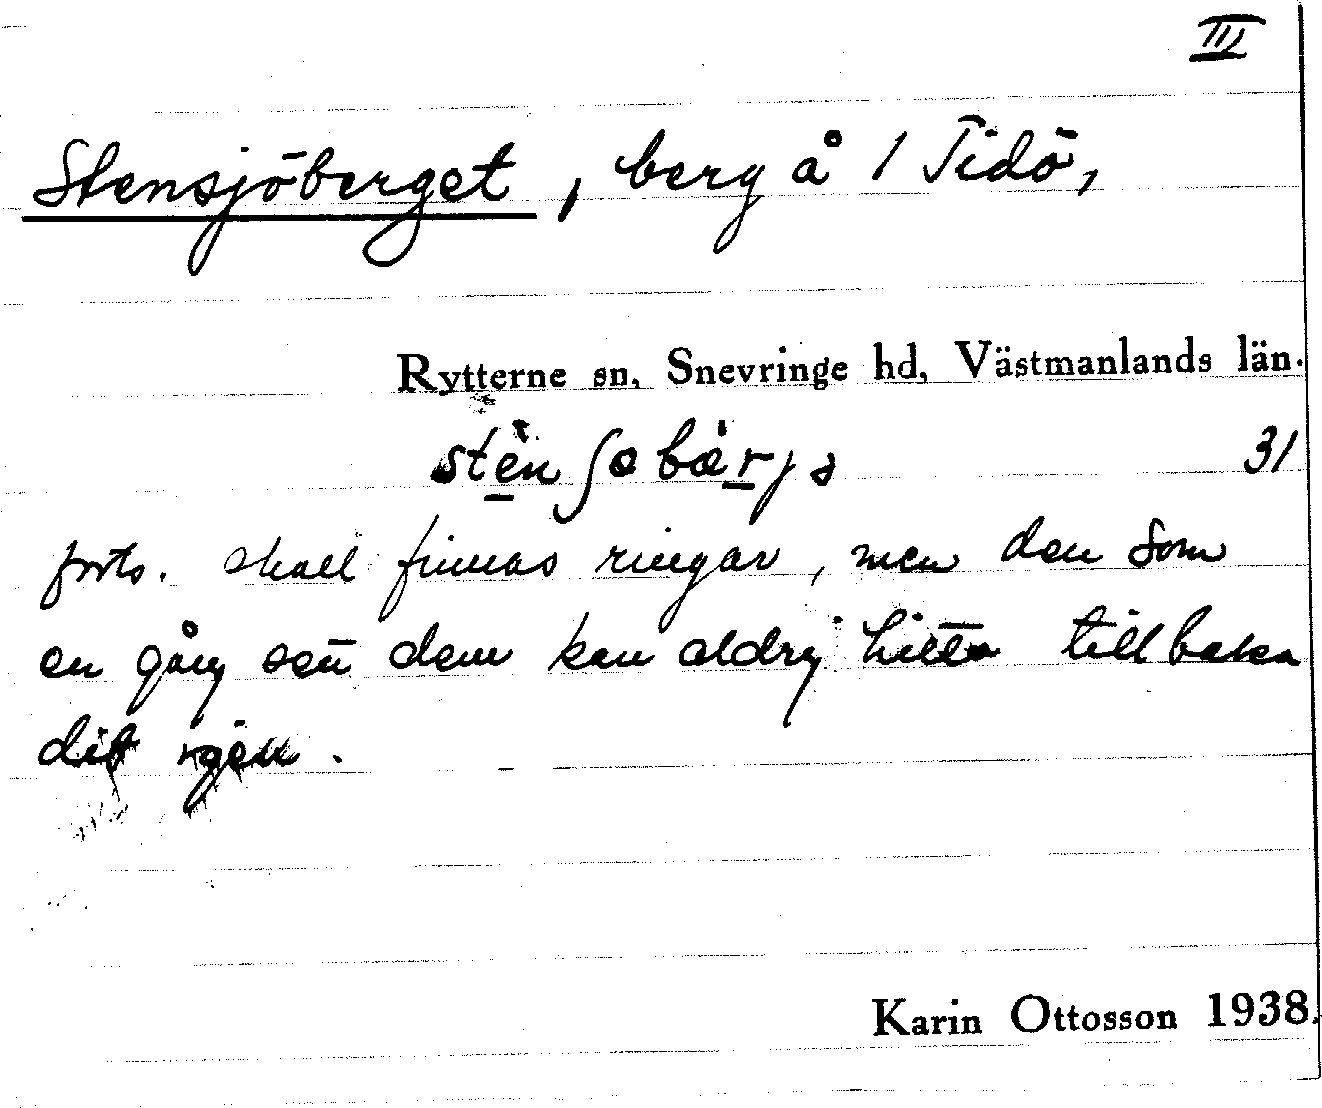 III
Stensjöberget, berg å 1 Tidö,
Rytterne sn, Snevringe hd, Västmanlands län.
stèn ʃobàrjə 31
forts. skall finnas ringar, men den som
en gång sett dem kan aldrig hitta tillbaka
dit igen.
Karin Ottosson 1938.